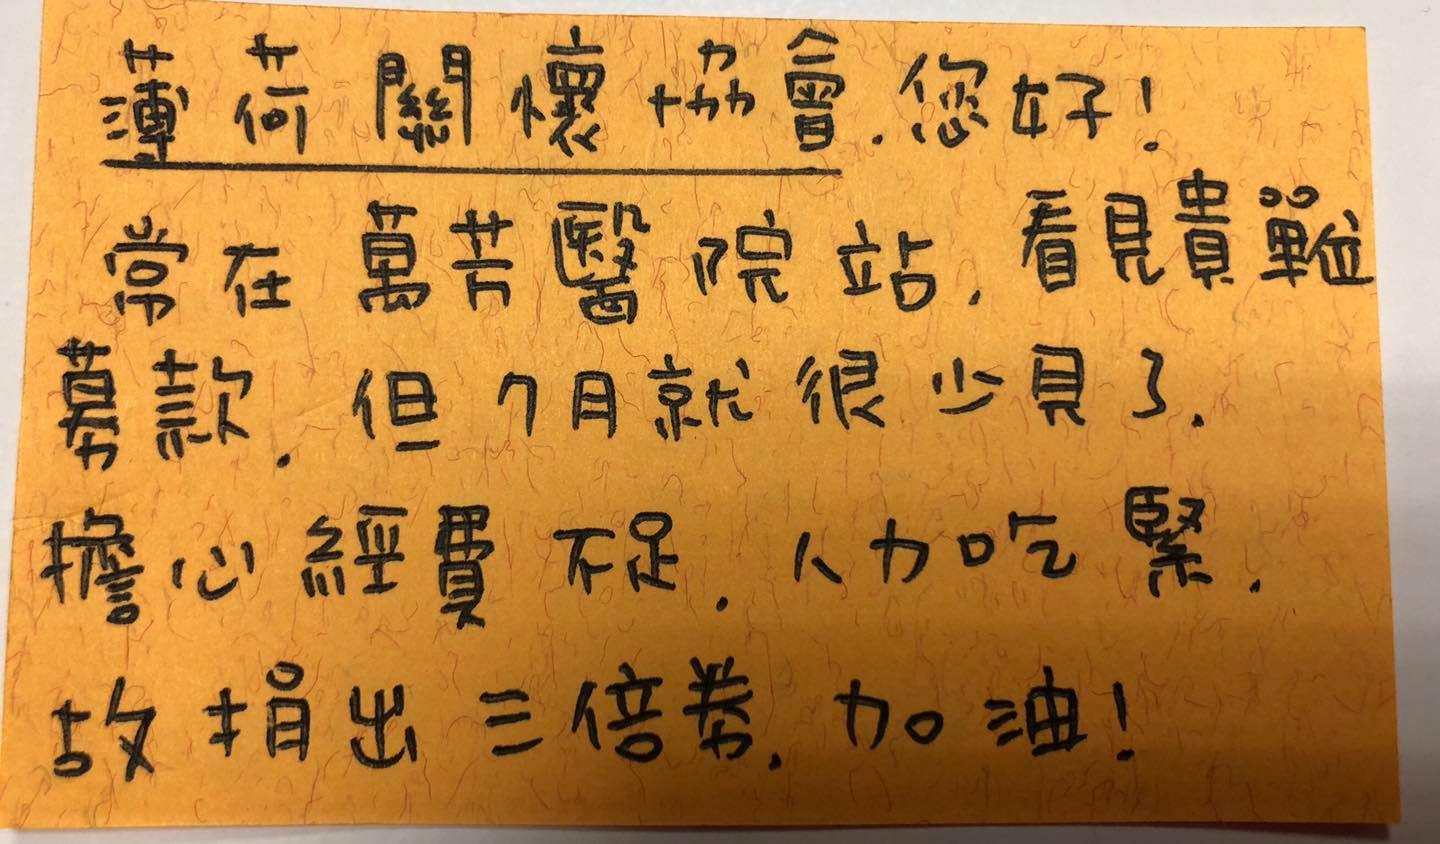 薄荷關懷協會.您好!
常在萬芳醫院站.看見貴單位
募款.但7月就很少見了.
擔心經費不足.人力吃緊.
故捐出三倍券.加油!